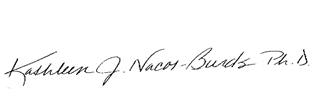 Kathleen J. Nacos-Burds Ph.D.